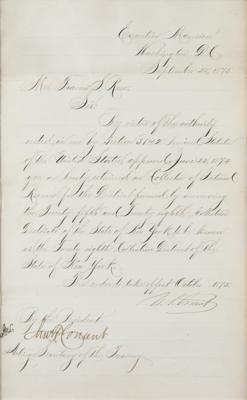 Executive Mansion
Washington D.C.
September 1875.
Sir
By virtue of the authority
vested in me by Section 3142 Revised Statutes
of the United States, approved June 22, 1874
you are hereby retained as Collector of Internal
Revenue for the District formed by annexing
the Twenty fifth and Twenty eighth Collection
Districts of the State of New York to be known
as the Twenty eighth Collection District of the
State of New York.
This order to take effect October 1875.
U. S. Grant
By the President
Conant
Acting Secretary of the Treasury